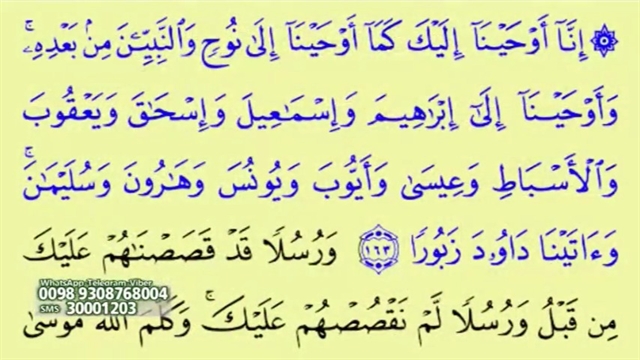 ۞ إِنَّآ أَوْحَيْنَآ إِلَيْكَ كَمَآ أَوْحَيْنَآ إِلَىٰ نُوحٍ وَٱلنَّبِيِّـۧنَ مِنۢ بَعْدِهِۦ ۚ
وَأَوْحَيْنَآ إِلَىٰٓ إِبْرَٰهِيمَ وَإِسْمَٰعِيلَ وَإِسْحَٰقَ وَيَعْقُوبَ
وَٱلْأَسْبَاطِ وَعِيسَىٰ وَأَيُّوبَ وَيُونُسَ وَهَٰرُونَ وَسُلَيْمَٰنَ ۚ
وَءَاتَيْنَا دَاوُۥدَ زَبُورًا ١٦٣ وَرُسُلًا قَدْ قَصَصْنَٰهُمْ عَلَيْكَ
مِن قَبْلُ وَرُسُلًا لَّمْ نَقْصُصْهُمْ عَلَيْكَ ۚ وَكَلَّمَ ٱللَّهُ مُوسَىٰ
WhatsApp-Telegram-Viber
0098 9308768004
SMS 30001203